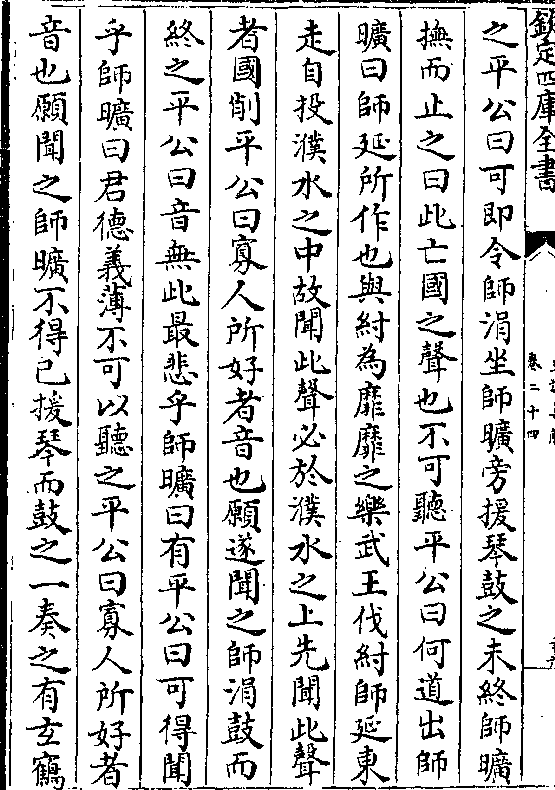 欽定四庫全書
卷二十四
之平公曰可即令師涓坐師曠旁援琴鼓之未終師曠
撫而止之曰此亡國之聲也不可聽平公曰何道出師
曠曰師延所作也與紂為靡靡之樂武王伐紂師延東
走自投濮水之中故聞此聲必於濮水之上先聞此聲
者國削平公曰寡人所好者音也願遂聞之師涓鼓而
終之平公曰音無此最悲乎師曠曰有平公曰可得聞
乎師曠曰君德義薄不可以聽之平公曰寡人所好者
音也願聞之師曠不得已援琴而鼓之一奏之有玄鶴